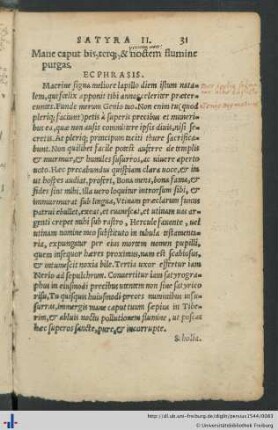 SATYRA II. 31
Mane caput bis, terq;, & noctem flumine
purgas.
ECPHRASIS.
Macrine signa meliore lapillo diem istum nata-
lem, qui foelix apponit tibi annos celeriter praeter-
euntes. Funde merum Genio tuo. Non enim tu, quod
pleriq; faciunt petis à superis precibus et muneri-
bus ea, quae non ausis committere ipsis diuis, nisi se-
cretis. At pleriq; principum taciti thure sacrifica-
bunt. Non quilibet facile potest auferre de templis
et murmur, et humiles susurros, ac viuere aperto
uoto. Haec precabundus quispiam clara uoce, et in
ut hospes audiat, profert, Bona mens, bona fama, et
fides sint mihi, illa uero loquitur introrsum sibi, et
immurmurat sub lingua, Vtinam praeclarum funus
patrui ebullet, extet, et euanescat, et utinam uas ar-
genti crepet mihi sub rastro, Hercule fauente, uel
utinam nomine meo substituto in tabula testamenta-
ria, expungatur per eius mortem nomen pupilli,
quem insequor haeres proximus, nam est scabiosus,
et intumescit noxia bile. Tertia uxor effertur iam
Nerio ad sepulchrum. Conuertitur iam satyrogra-
phus in eiusmodi precibus utentem non sine satyrico
risu, Tu quisquis huiusmodi preces numinibus insu-
surras, immergis mane caput tuum saepius in Tibe-
rim, et abluis noctis pollutionem flumine, ut poscas
haec superos sancte, pure, et incorrupte.
Scholia.
http://dl.ub.uni-freiburg.de/diglit/persius1544/0083
© Universitätsbibliothek Freiburg